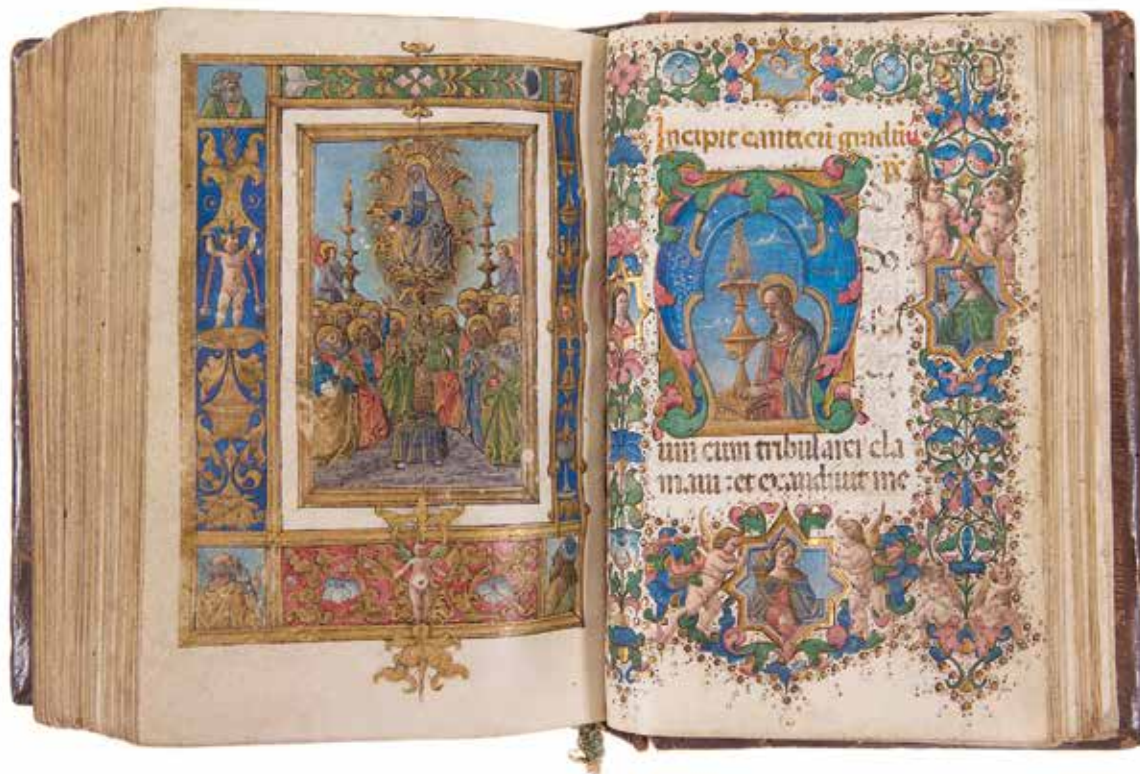 Incipit canticũ graduũ
A D
Do
num cum tribularer cla
maui : et exaudiuit me